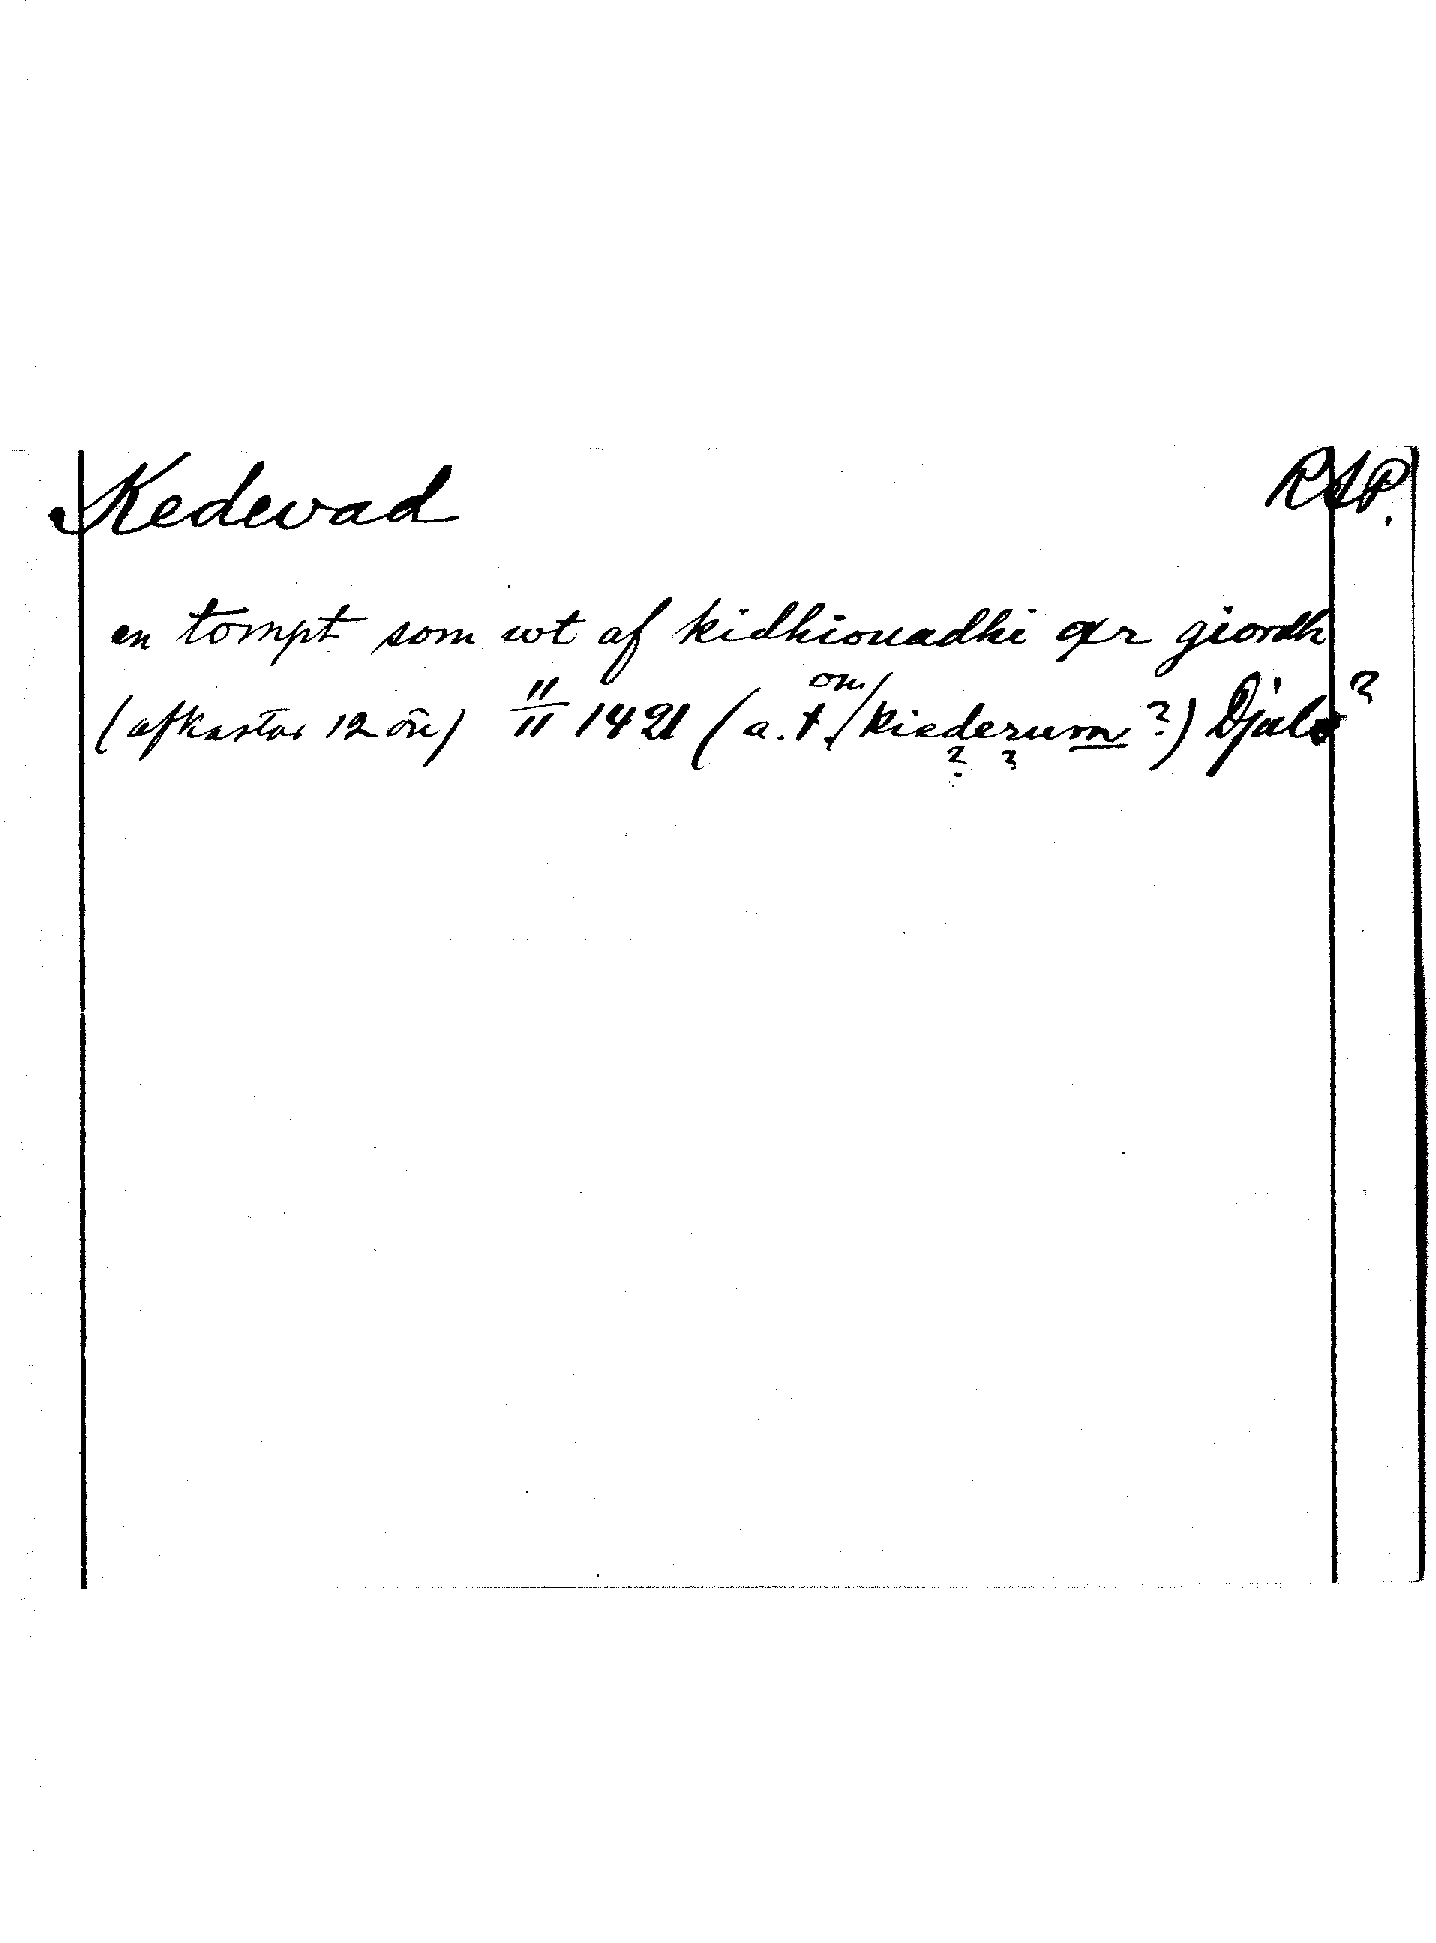 Kedevad RAP.
en tompt som wt af kidhiouadhi ær giordh
(afkastar 12 öre) 11/11 1421 (a. t. om/ kiederum?) Djulö?
? ?